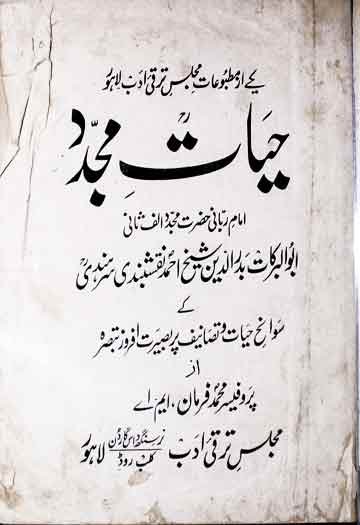 یکے از مطبوعات مجلس ترقی ادب لاہور
حیاتِ مجدّدؒ
امام ربانی حضرت مجدد الف ثانی
ابوالبرکات بدرالدین شیخ احمد نقشبندی سرہندیؒ
کے
سوانح حیات و تصانیف پر بصیرت افروز تبصرہ
از
پروفیسر محمد فرمان، ایم اے
مجلس ترقی ادب نرسنگداس گارڈن کلب روڈ لاہور